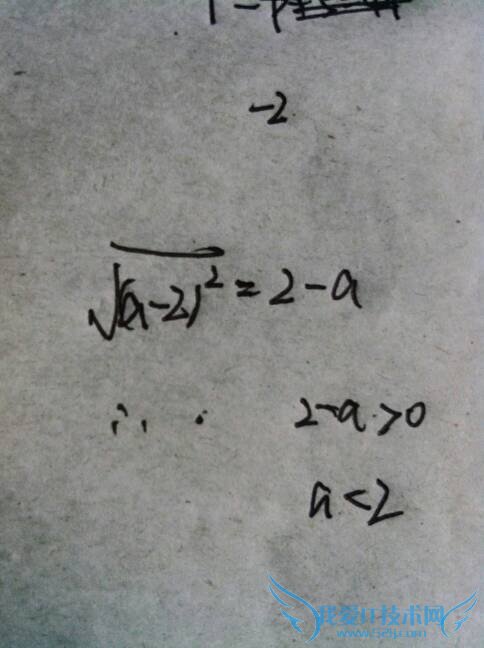 -2
√(a-2)² = 2-a
∴ 2-a>0
a<2
我爱IT技术网
www.52ij.com